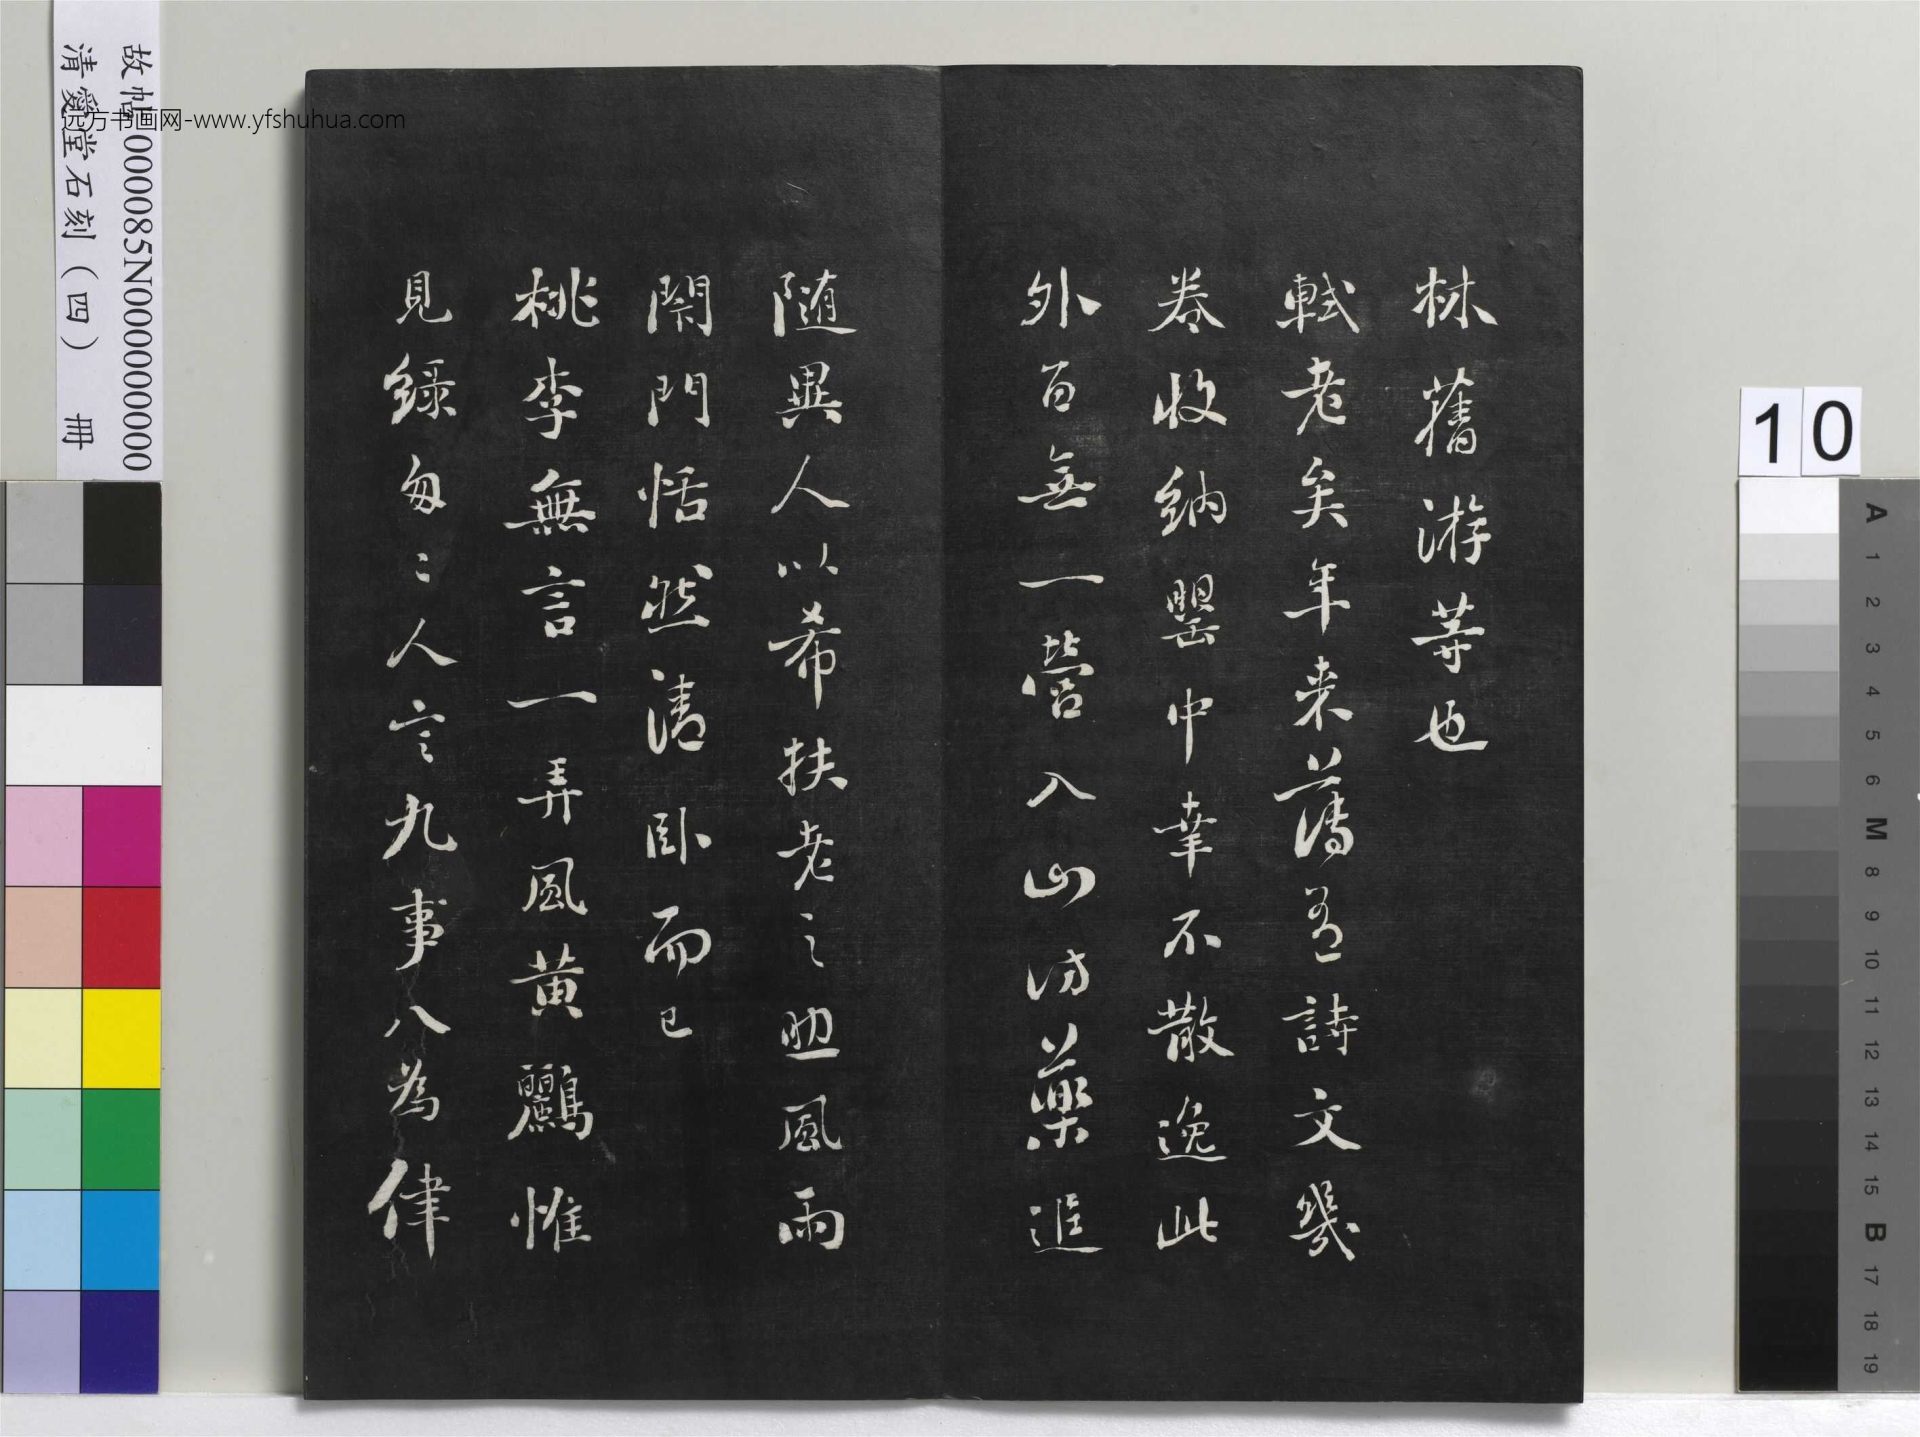 林舊游等也
軾老矣年來薄有詩文幾
卷收納罌中幸不散逸此
外百無一營入山訪藥進
隨異人以希扶老之助風雨
閉門恬然清卧而已
桃李無言一弄風黄鸝惟
見綠匆〻人言九事八為律
故帖000085N000000000
清愛堂石刻（四） 冊
远方书画网-www.yfshuhua.com
10
A
1
2
3
4
5
6
M
8
9
10
11
12
13
14
15
B
17
18
19